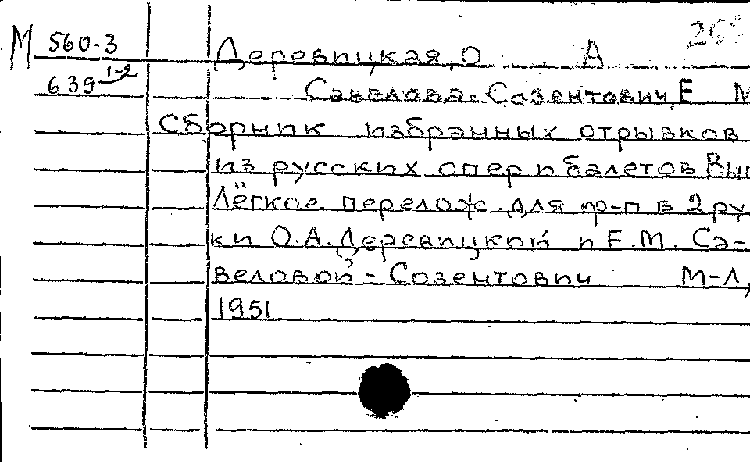 М 560-3 Деревицкая, О А
639 1-2 Савелова-Созентович, Е М
Сборник избранных отрывков
из русских опер и балетов Вып
Лёгкое перелож. для ф-п в 2 ру
ки О.А. Деревицкой и Е.М. Са-
веловой-Созентович М-Л,
1951